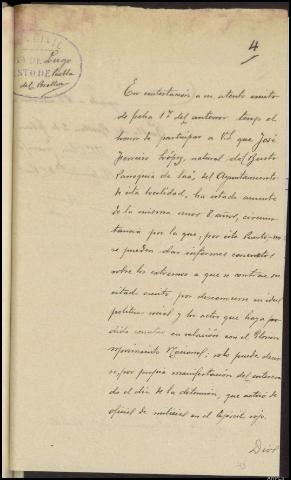 4
CIVIL
DE Lugo
STO DE Puebla
del Brollon
En contestacion a su atento escrito
de fecha 1º del anterior tengo el
honor de participar a Vd. que José
Ferreiro López, natural de
Parroquia de Saá, del Ayuntamiento
de esta localidad, ha estado ausente
de la misma unos 8 años, circuns-
tancia por la que, por este Puesto no
se pueden dar informes concretos
sobre los extremos a que se contrae su
citado escrito, por desconocerse su ideal
politico social y los actos que haya po-
dido cometer en relación con el Glorioso
Movimiento Nacional; solo puede decir
se, por propia manifestación del interesa-
do el dia de la detencion, que actuó de
oficial de milicias en el Ejercito rojo.
Dios